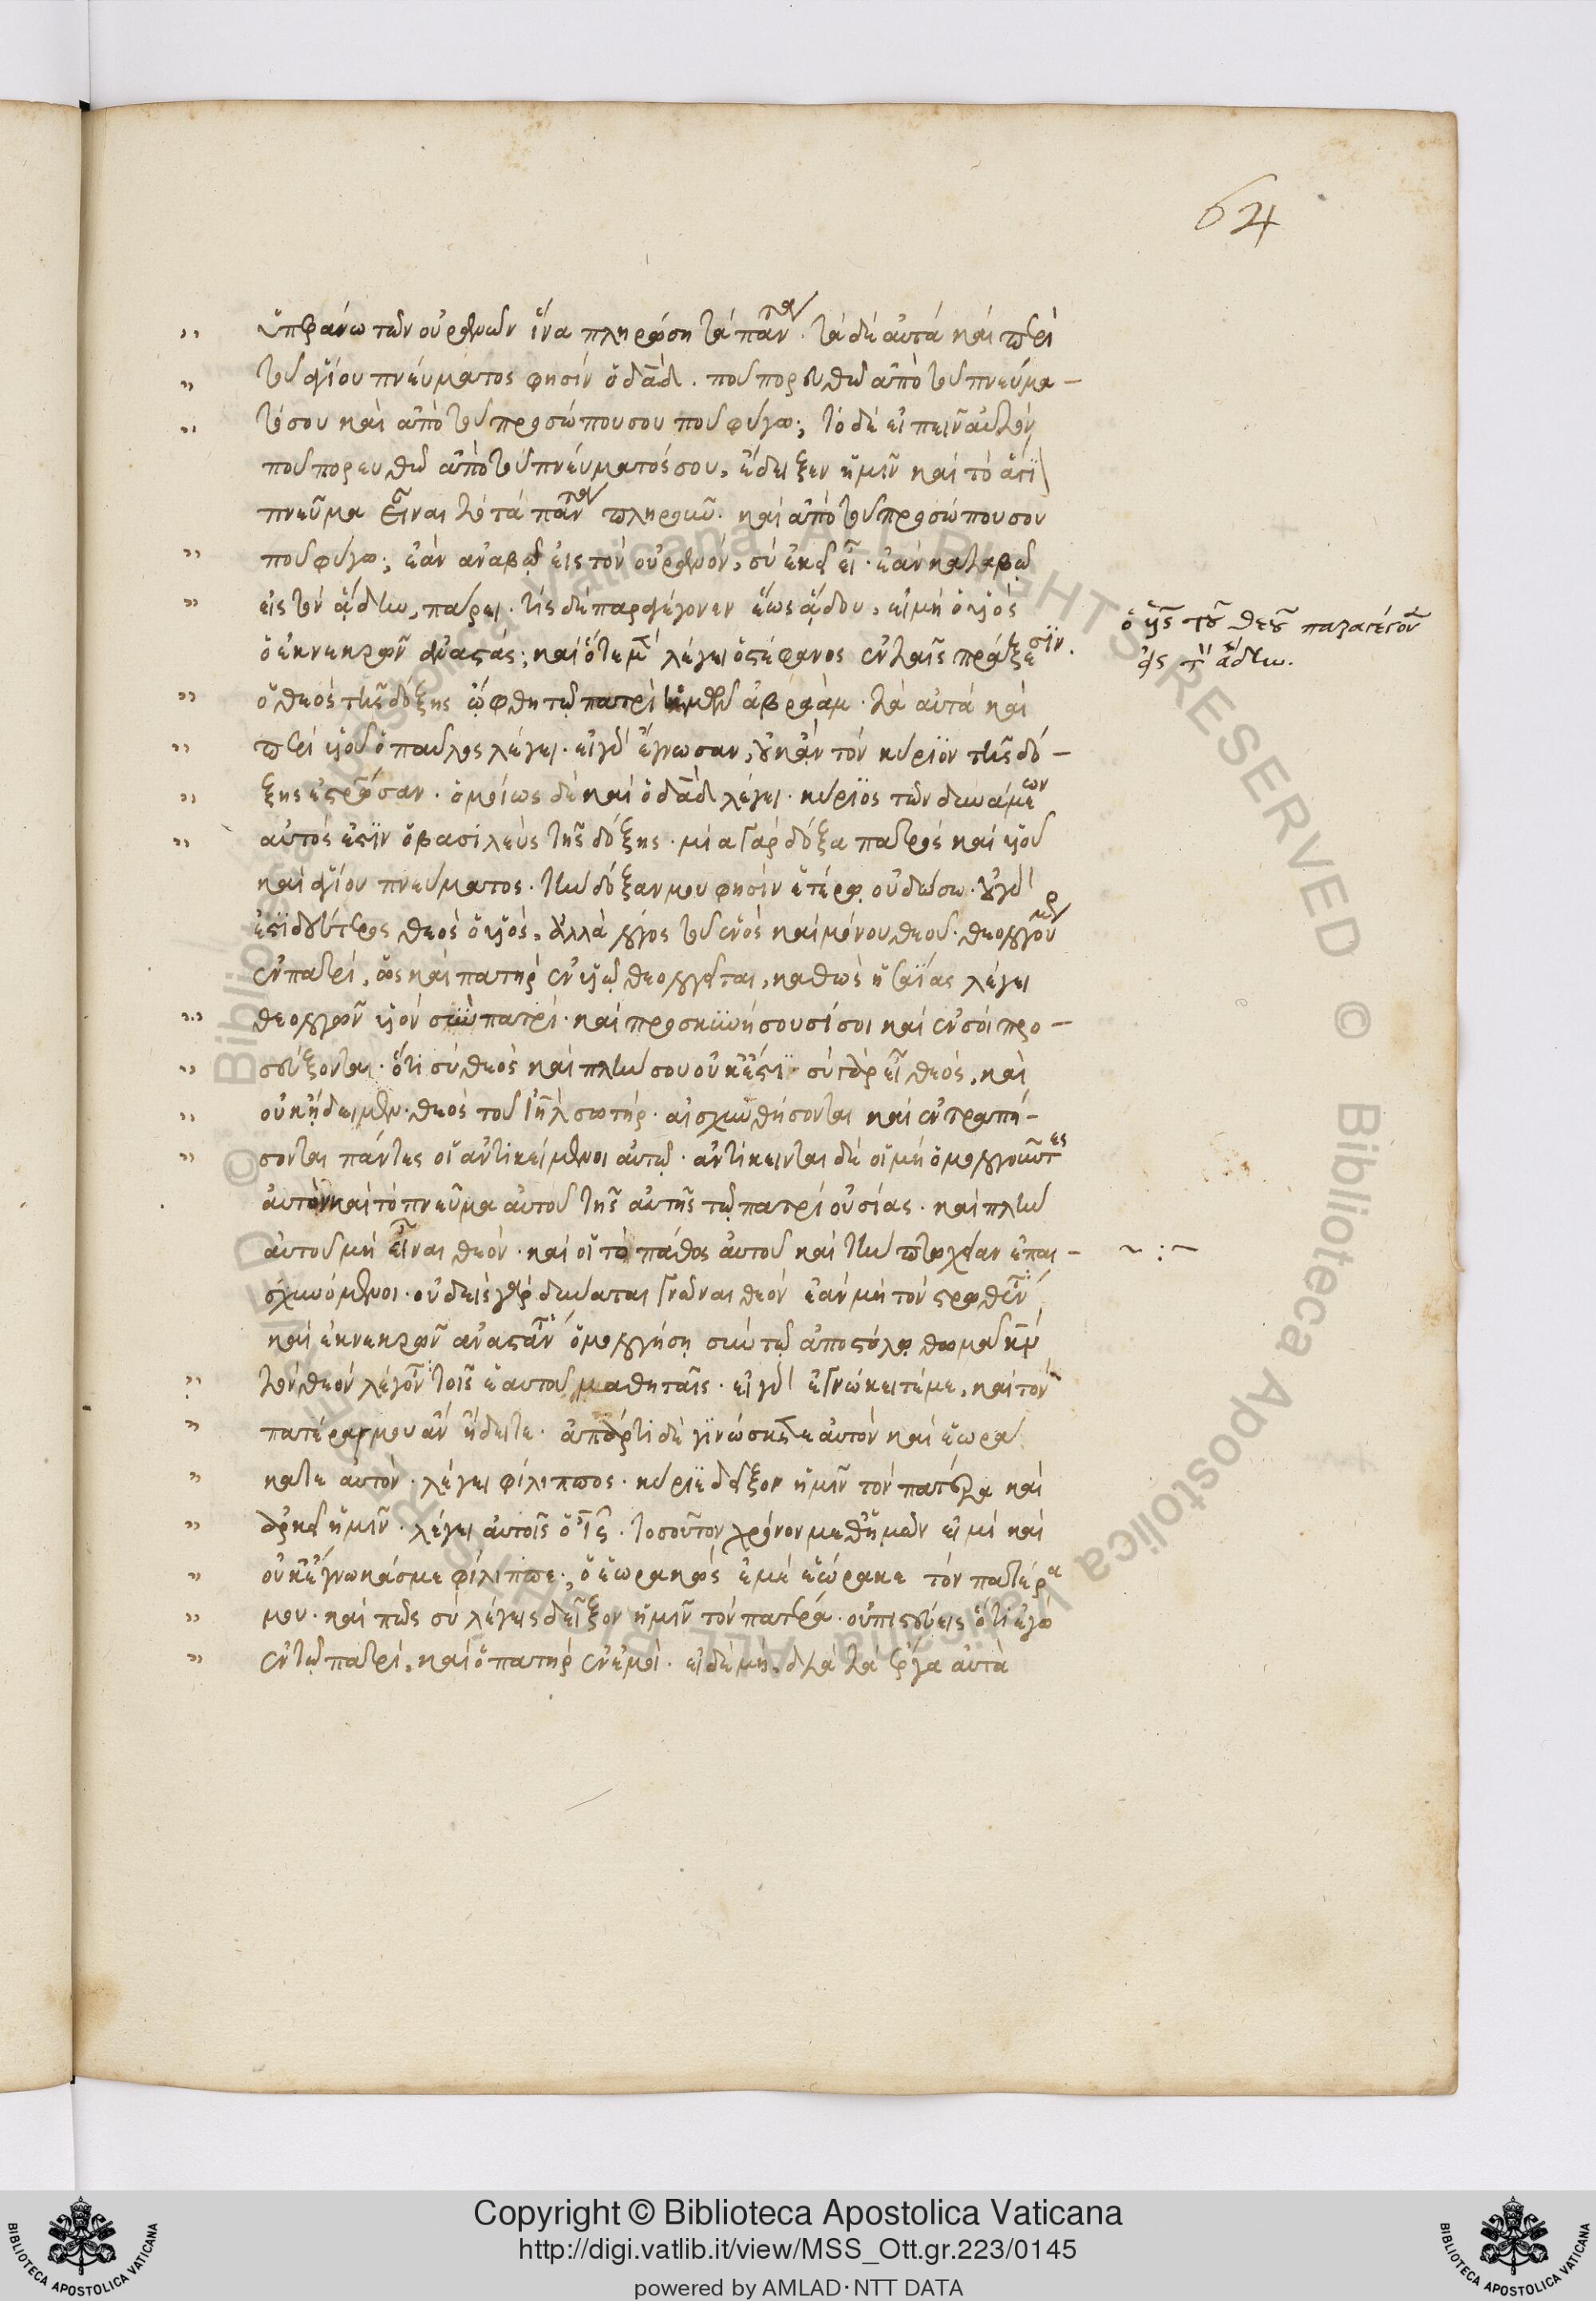 64
ὑπεράνω τῶν οὐρανῶν ἵνα πληρώση τὰ πάντα. τὰ δὲ αὐτὰ καὶ περὶ
τοῦ ἁγίου πνεύματος φησὶν ὁ δᾱδ. ποῦ πορευθῶ ἀπὸ τοῦ πνεύμα-
τός σου καὶ ἀπὸ τοῦ προσώπου σου ποῦ φύγω; τὸ δὲ εἰπεῖν αὐτὸν
ποῦ πορευθῶ ἀπὸ τοῦ πνεύματός σου, ἔδειξεν ἡμῖν καὶ τὸ ἅγι
πνεῦμα εἶναι τὸ τὰ πάντα πληροῦν. καὶ ἀπὸ τοῦ προσώπου σου
ποῦ φύγω; ἐὰν ἀναβῶ εἰς τὸν οὐρανόν, σὺ ἐκεῖ εἶ. ἐὰν καταβῶ
εἰς τὸν ἅδην, πάρει. τίς δὲ παραγέγονεν ἕως ἅδου, εἰ μὴ ὁ υἱὸς
ὁ ἐκ νεκρῶν ἀναστάς; καὶ ὅτε μὲν λέγει ὁ στέφανος ἐν ταῖς πράξεσιν.
ὁ υἱὸς τοῦ θεοῦ παραγέγονεν
εἰς τὸν ἅδην.
ὁ θεὸς τῆς δόξης ὤφθη τῷ πατρὶ ἡμῶν ἀβραάμ. τὰ αὐτὰ καὶ
περὶ υἱοῦ ὁ παῦλος λέγει. εἰ γὰρ ἔγνωσαν, οὐκ ἂν τὸν κύριον τῆς δό-
ξης ἐσταύρωσαν. ὁμοίως δὲ καὶ ὁ δᾱδ λέγει. κύριος τῶν δυνάμεων
αὐτός ἐστιν ὁ βασιλεὺς τῆς δόξης. μία γὰρ δόξα πατρὸς καὶ υἱοῦ
καὶ ἁγίου πνεύματος. τὴν δόξαν μου φησὶν ἑτέρῳ οὐ δώσω. οὐ γὰρ
ἐστὶ δεύτερος θεὸς ὁ υἱὸς, ἀλλὰ λόγος τοῦ ἑνὸς καὶ μόνου θεοῦ. θεολογούμενος
ἐν πατρί, ὡς καὶ πατὴρ ἐν υἱῷ θεολογεῖται, καθὼς ἡσαΐας λέγει
θεολογῶν υἱὸν σὺν πατρί. καὶ προσκυνήσουσί σοι καὶ ἐν σοὶ προ-
σεύξονται. ὅτι σὺ θεὸς καὶ πλὴν σου οὐκ ἔστι. σὺ γὰρ εἶ θεός, καὶ
οὐκ ᾔδειμεν. θεὸς τοῦ ἰῆλ σωτήρ. αἰσχυνθήσονται καὶ ἐντραπή-
σονται πάντες οἱ ἀντικείμενοι αὐτῷ. ἀντίκεινται δὲ οἱ μὴ ὁμολογοῦντες
αὐτὸν καὶ τὸ πνεῦμα αὐτοῦ τῆς αὐτῆς τῷ πατρὶ οὐσίας. καὶ πλὴν
αὐτοῦ μὴ εἶναι θεόν. καὶ οἱ τὸ πάθος αὐτοῦ καὶ τὴν πτωχείαν ἐπαι-
~:~
σχυνόμενοι. οὐδεὶς γὰρ δύναται γνῶναι θεὸν ἐὰν μὴ τὸν σταυρωθέντα
καὶ ἐκ νεκρῶν ἀναστάντα ὁμολογήση σὺν τῷ ἀποστόλῳ θωμᾷ κν̄
τὸν θεὸν λέγοντα τοῖς ἑαυτοῦ μαθηταῖς. εἰ γὰρ ἐγνώκειτέ με, καὶ τὸν
πατέρα μου ἂν ᾔδειτε. ἀπάρτι δὲ γινώσκετε αὐτὸν καὶ ἑωρά
κατε αὐτόν. λέγει φίλιππος. κύριε δεῖξον ἡμῖν τὸν πατέρα καὶ
ἀρκεῖ ἡμῖν. λέγει αὐτοῖς ὁ ις̄. τοσοῦτον χρόνον μεθ' ἡμῶν εἰμὶ καὶ
οὐκ ἔγνωκάς με φίλιππε; ὁ ἑωρακὼς ἐμὲ ἑώρακε τὸν πατέρα
μου. καὶ πῶς σὺ λέγεις δεῖξον ἡμῖν τὸν πατέρα. οὐ πιστεύεις ὅτι ἐγὼ
ἐν τῷ πατρί, καὶ ὁ πατὴρ ἐν ἐμοί. εἰ δὲ μή, διὰ τὰ ἔργα αὐτὰ
Copyright © Biblioteca Apostolica Vaticana
http://digi.vatlib.it/view/MSS_Ott.gr.223/0145
powered by AMLAD·NTT DATA